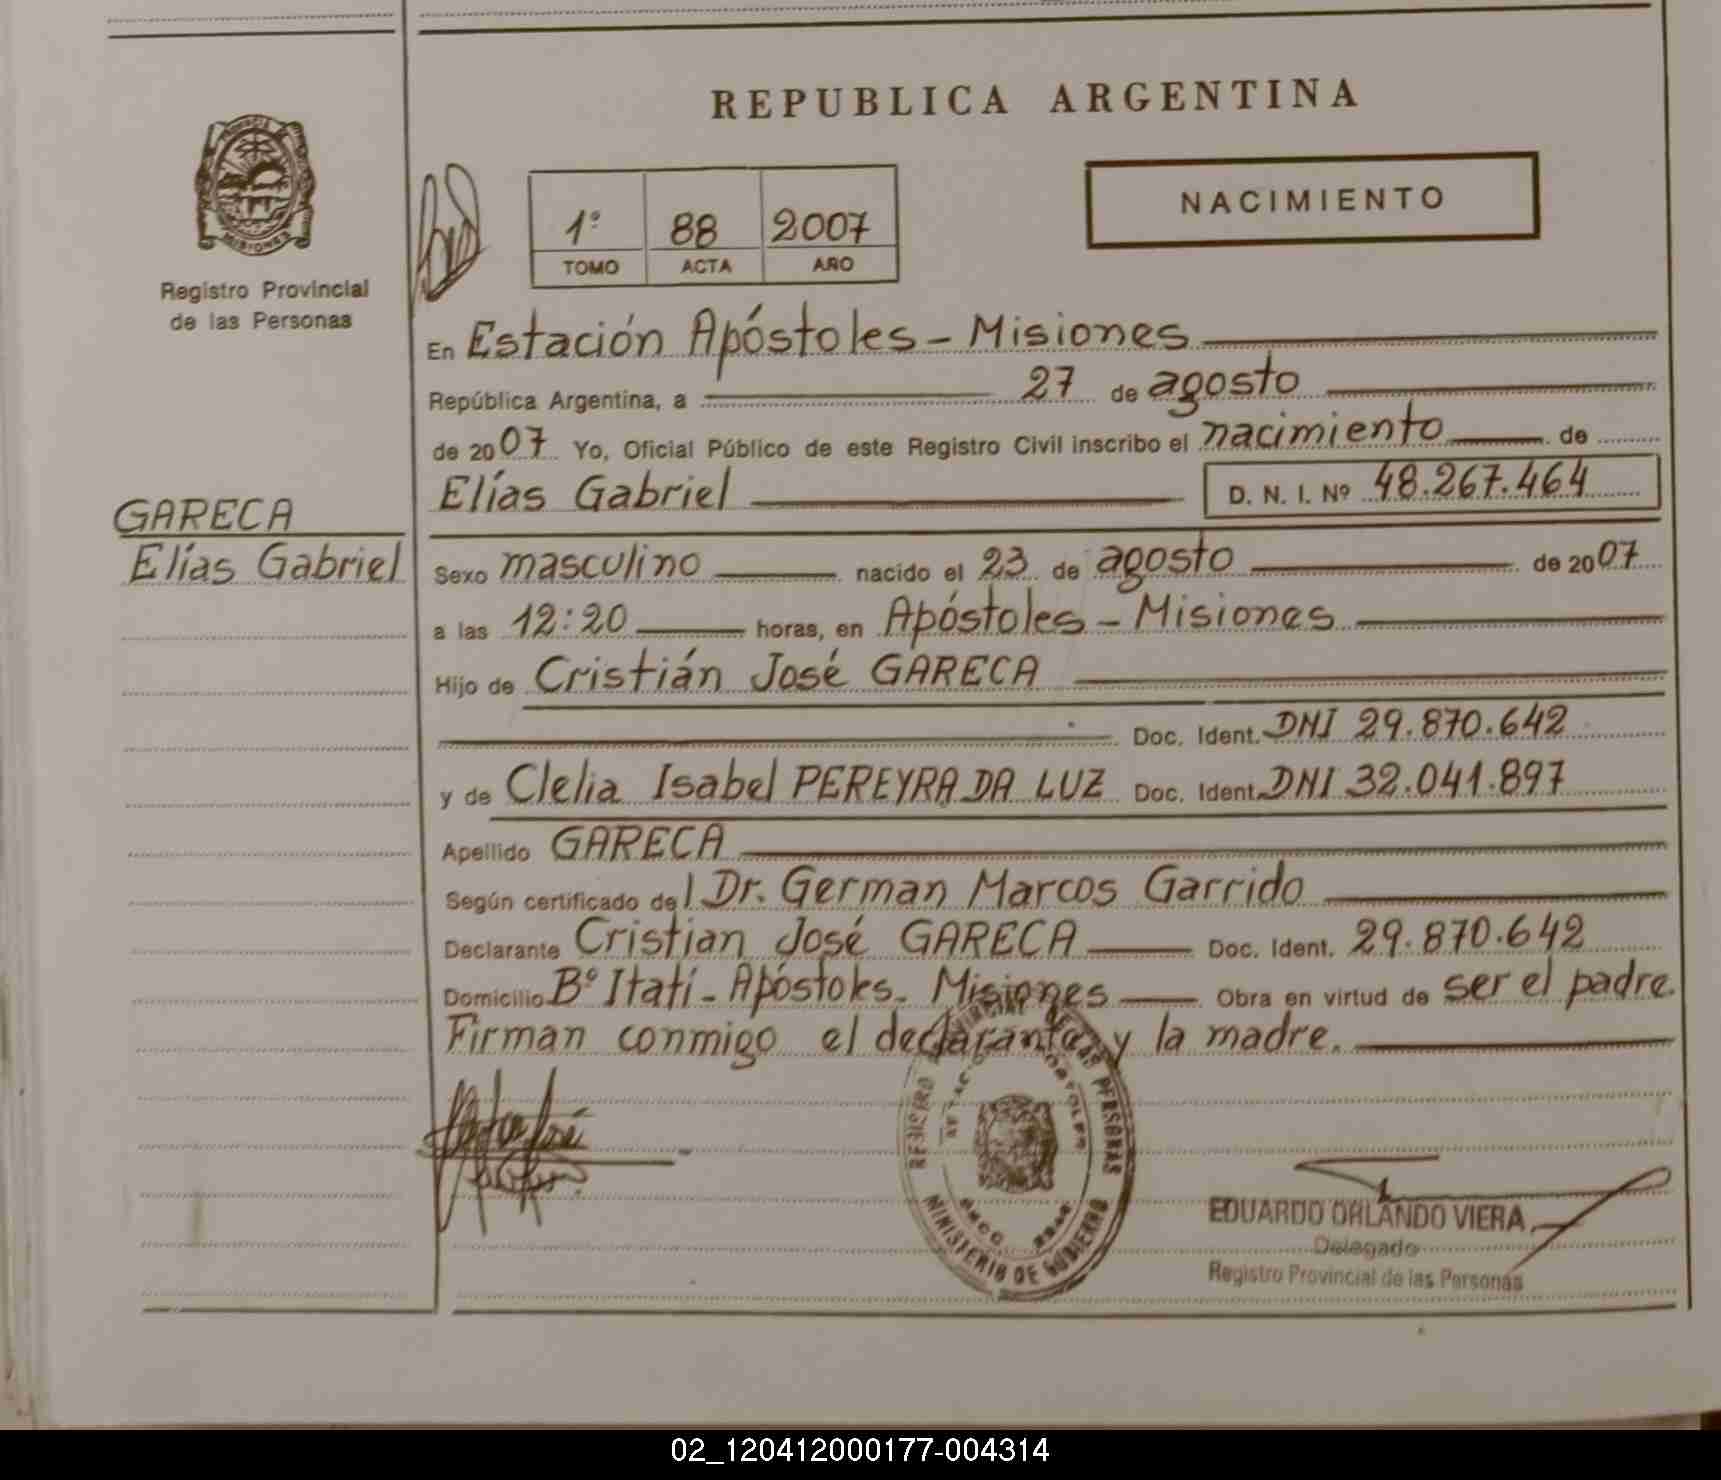 REPUBLICA ARGENTINA
PROVINCIA DE
MISIONES
Registro Provincial
de las Personas
1º 88 2007
TOMO ACTA AÑO
NACIMIENTO
En Estación Apóstoles - Misiones
República Argentina, a 27 de agosto
de 2007 Yo, Oficial Público de este Registro Civil inscribo el nacimiento de
Elías Gabriel D. N. I. Nº 48.267.464
GARECA
Elías Gabriel
Sexo masculino nacido el 23 de agosto de 2007
a las 12:20 horas, en Apóstoles - Misiones
Hijo de Cristián José GARECA
Doc. Ident. DNI 29.870.642
y de Clelia Isabel PEREYRA DA LUZ Doc. Ident. DNI 32.041.897
Apellido GARECA
Según certificado del Dr. German Marcos Garrido
Declarante Cristian José GARECA Doc. Ident. 29.870.642
Domicilio Bº Itatí - Apóstoles - Misiones Obra en virtud de ser el padre.
Firman conmigo el declarante y la madre.
REGISTRO PROVINCIAL DE LAS PERSONAS
MINISTERIO DE GOBIERNO
EDUARDO ORLANDO VIERA
Delegado
Registro Provincial de las Personas
02_120412000177-004314